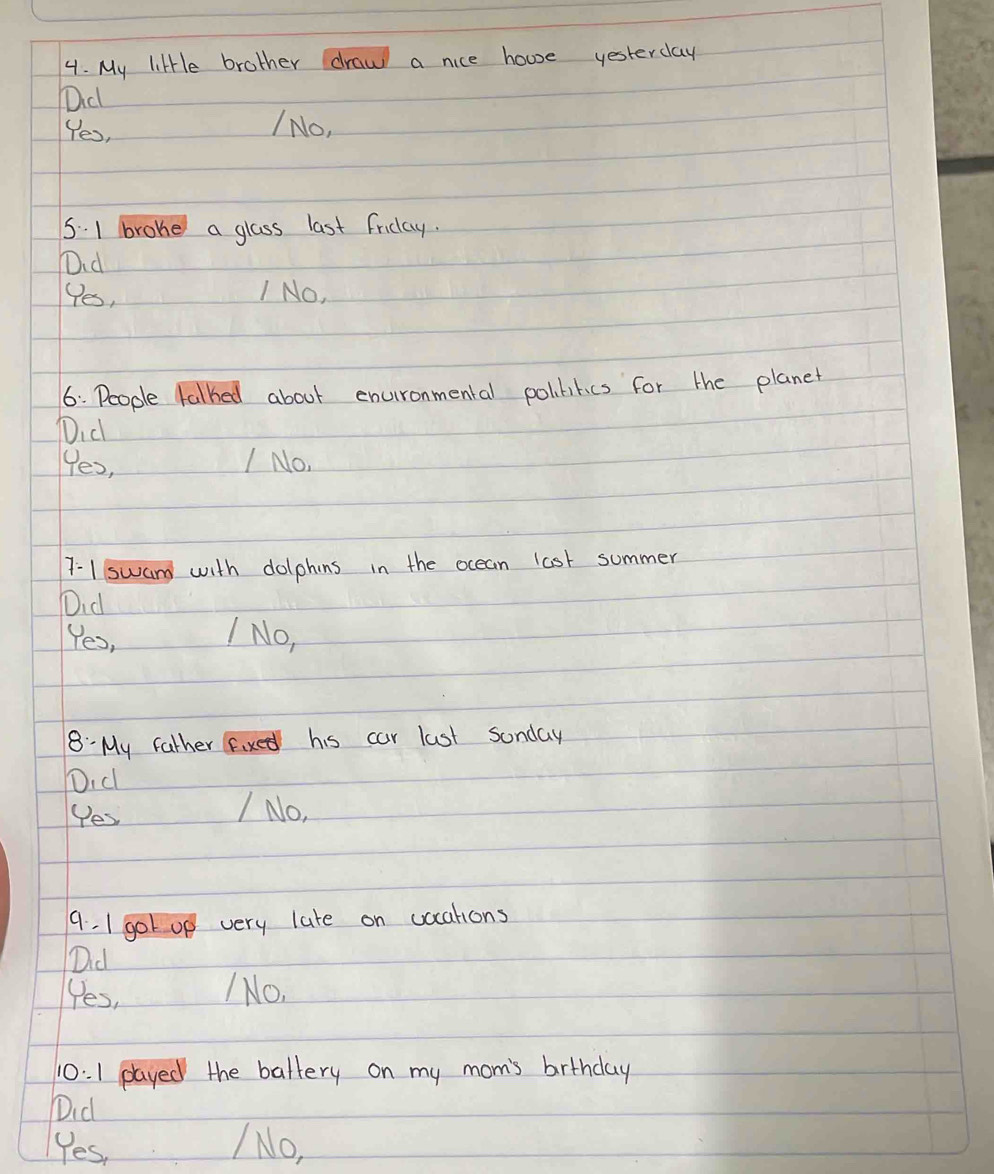 4.- My little brother draw a nice house yesterday
Did
Yes, / No,
5.- I broke a glass last friday.
Did
Yes, / No,
6.- People talked about environmental polititics for the planet
Did
Yes, / No,
7.- I swam with dolphins in the ocean last summer
Did
Yes, / No,
8.- My father fixed his car last sunday
Did
Yes / No,
9.- I got up very late on vacations
Did
Yes, / No,
10.- I played the battery on my mom's birthday
Did
Yes, / No,